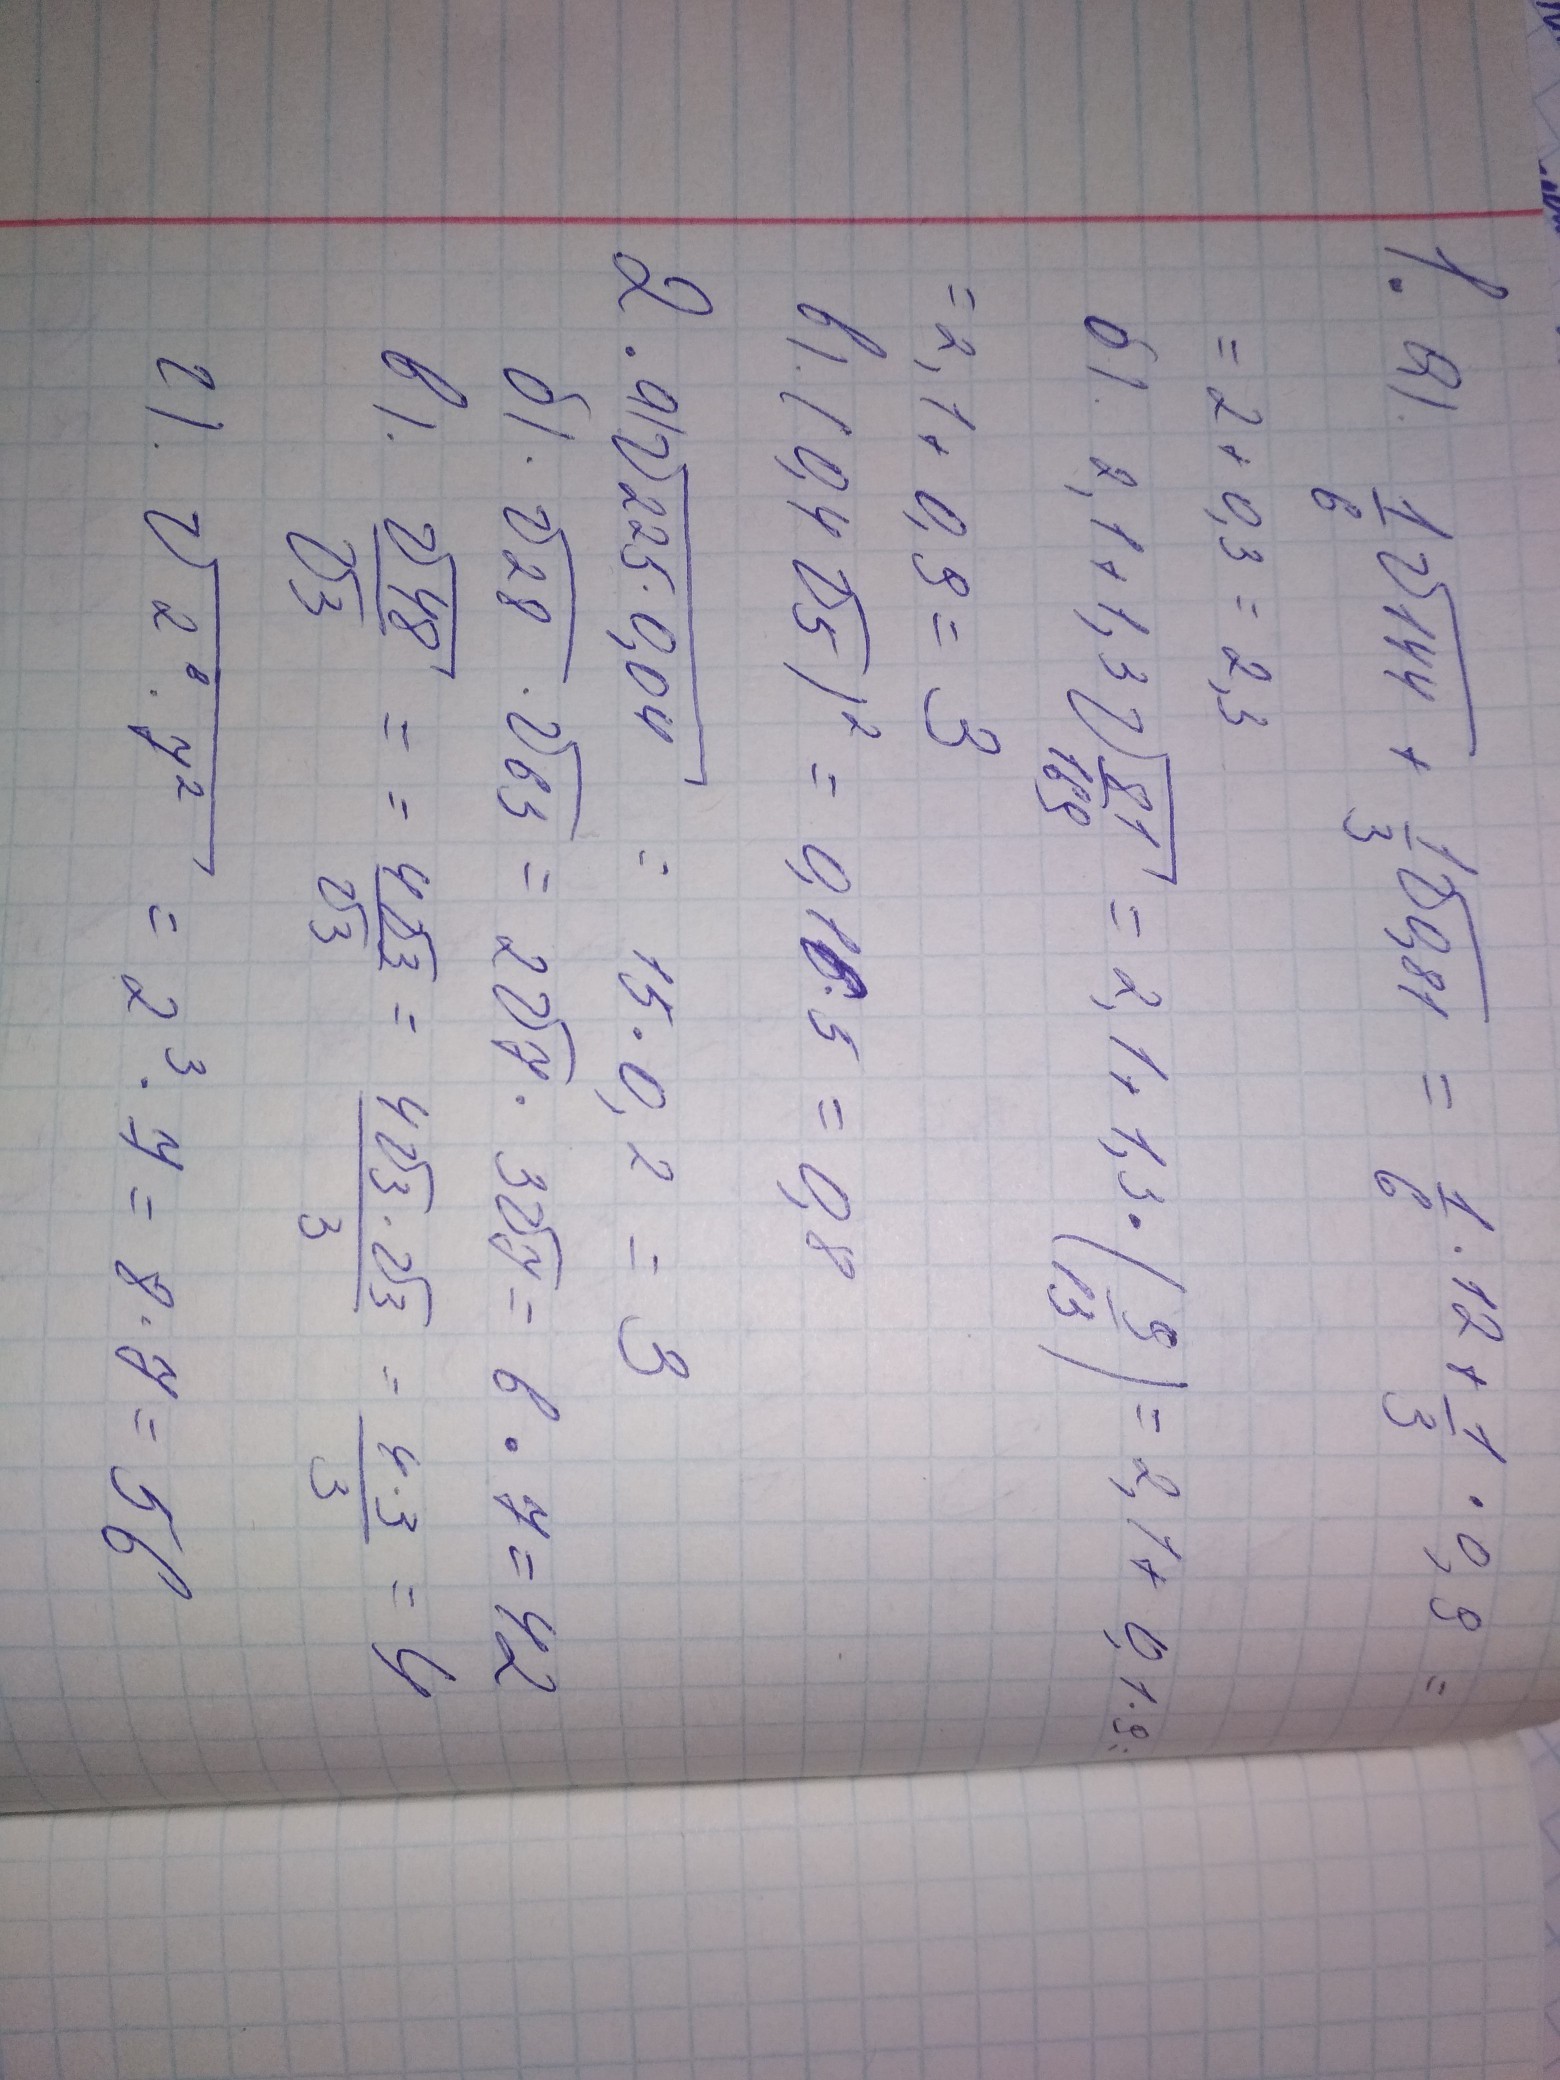 1. а). 1/6 √144 + 1/3 √0,81 = 1/6 · 12 + 1/3 · 0,9 =
= 2 + 0,3 = 2,3
б). 2,1 + 1,3 √(81/169) = 2,1 + 1,3 · (9/13) = 2,1 + 0,1·9=
= 2,1 + 0,9 = 3
в). (0,4 √5)² = 0,16·5 = 0,8
2. а) √(225·0,04) = 15·0,2 = 3
б). √28 · √63 = 2√7 · 3√7 = 6 · 7 = 42
в). √48/√3 = = 4√3/√3 = 4√3·√3/3 = 4·3/3 = 4
г). √(2⁸·7²) = 2³·7 = 8·7 = 56